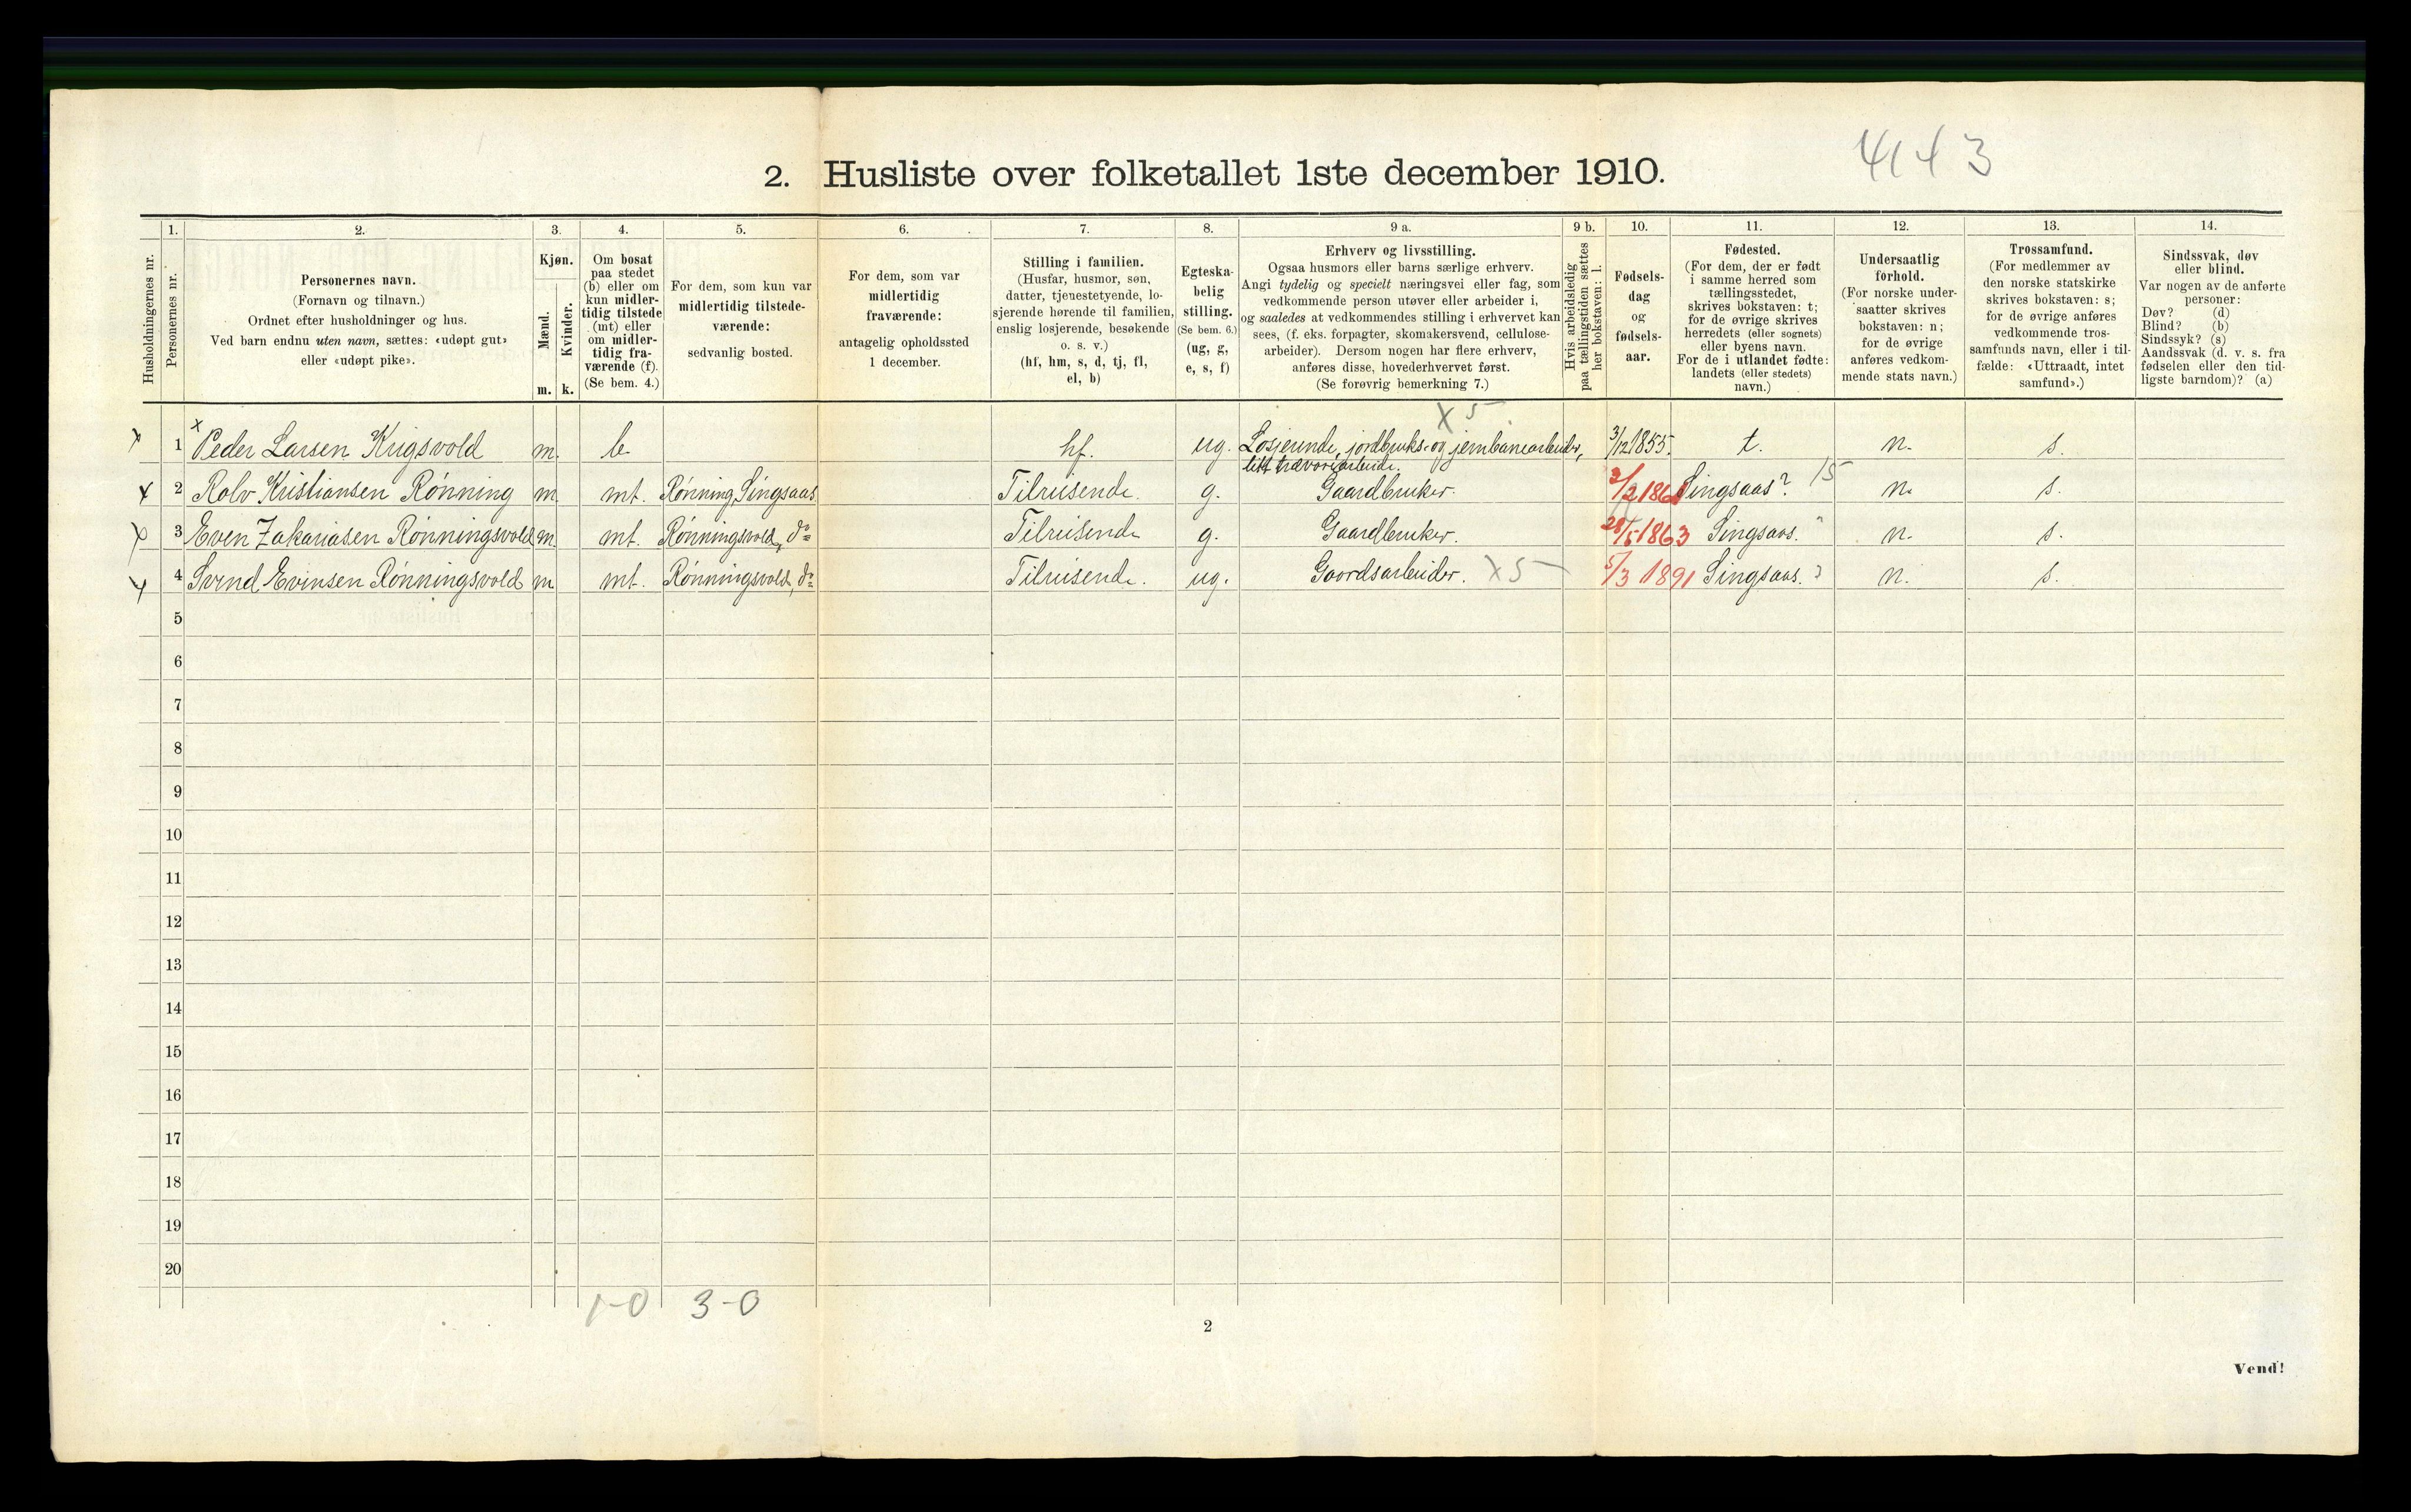 4143
2. Husliste over folketallet 1ste december 1910.
Husholdningernes nr.
1.
Personernes nr.
2.
Personernes navn.
(Fornavn og tilnavn.)
Ordnet efter husholdninger og hus.
Ved barn endnu uten navn, sættes: «udøpt gut»
eller «udøpt pike».
3.
Kjøn.
Mænd.
Kvinder.
m. k.
4.
Om bosat
paa stedet
(b) eller om
kun midler-
tidig tilstede
(mt) eller
om midler-
tidig fra-
værende (f).
(Se bem. 4.)
5.
For dem, som kun var
midlertidig tilstede-
værende:
sedvanlig bosted.
6.
For dem, som var
midlertidig
fraværende:
antagelig opholdssted
1 december.
7.
Stilling i familien.
(Husfar, husmor, søn,
datter, tjenestetyende, lo-
sjerende hørende til familien,
enslig losjerende, besøkende
o. s. v.)
(hf, hm, s, d, tj, fl,
el, b)
8.
Egteska-
belig
stilling.
(Se bem. 6.)
(ug, g,
e, s, f)
9 a.
Erhverv og livsstilling.
Ogsaa husmors eller barns særlige erhverv.
Angi tydelig og specielt næringsvei eller fag, som
vedkommende person utøver eller arbeider i,
og saaledes at vedkommendes stilling i erhvervet kan
sees, (f. eks. forpagter, skomakersvend, cellulose-
arbeider). Dersom nogen har flere erhverv,
anføres disse, hovederhvervet først.
(Se forøvrig bemerkning 7.)
9 b.
Hvis arbeidsledig
paa tællingstiden sættes
her bokstaven: l.
10.
Fødsels-
dag
og
fødsels-
aar.
11.
Fødested.
(For dem, der er født
i samme herred som
tællingsstedet,
skrives bokstaven: t;
for de øvrige skrives
herredets (eller sognets)
eller byens navn.
For de i utlandet fødte:
landets (eller stedets)
navn.)
12.
Undersaatlig
forhold.
(For norske under-
saatter skrives
bokstaven: n;
for de øvrige
anføres vedkom-
mende stats navn.)
13.
Trossamfund.
(For medlemmer av
den norske statskirke
skrives bokstaven: s;
for de øvrige anføres
vedkommende tros-
samfunds navn, eller i til-
fælde: «Uttraadt, intet
samfund».)
14.
Sindssvak, døv
eller blind.
Var nogen av de anførte
personer:
Døv? (d)
Blind? (b)
Sindssyk? (s)
Aandssvak (d. v. s. fra
fødselen eller den tid-
ligste barndom)? (a)
X 5
x 1 x Peder Larsen Krigsvold m. b. hf. ug. Losjerende, jordbruks- og jernbanearbeider, 3/12 1855. t. n. s.
litt trævarearbeide.
x 2 Rolv Kristiansen Rønning m. mt. Rønning, Singsaas Tilreisende. g. Gaardbruker. Singsaas? 15 n. s.
x 3 Even Zakariasen Rønningsvold m. mt. Rønningsvold, do Tilreisende g. Gaardbruker. 28/5 1863 Singsaas. n. s.
x 4 Svend Evensen Rønningsvold m. mt. Rønningsvold, do Tilreisende. ug. Gaardsarbeider. X5 5/3 1891 Singsaas. n. s.
5
6
7
8
9
10
11
12
13
14
15
16
17
18
19
20
1-0 3-0
2
Vend!